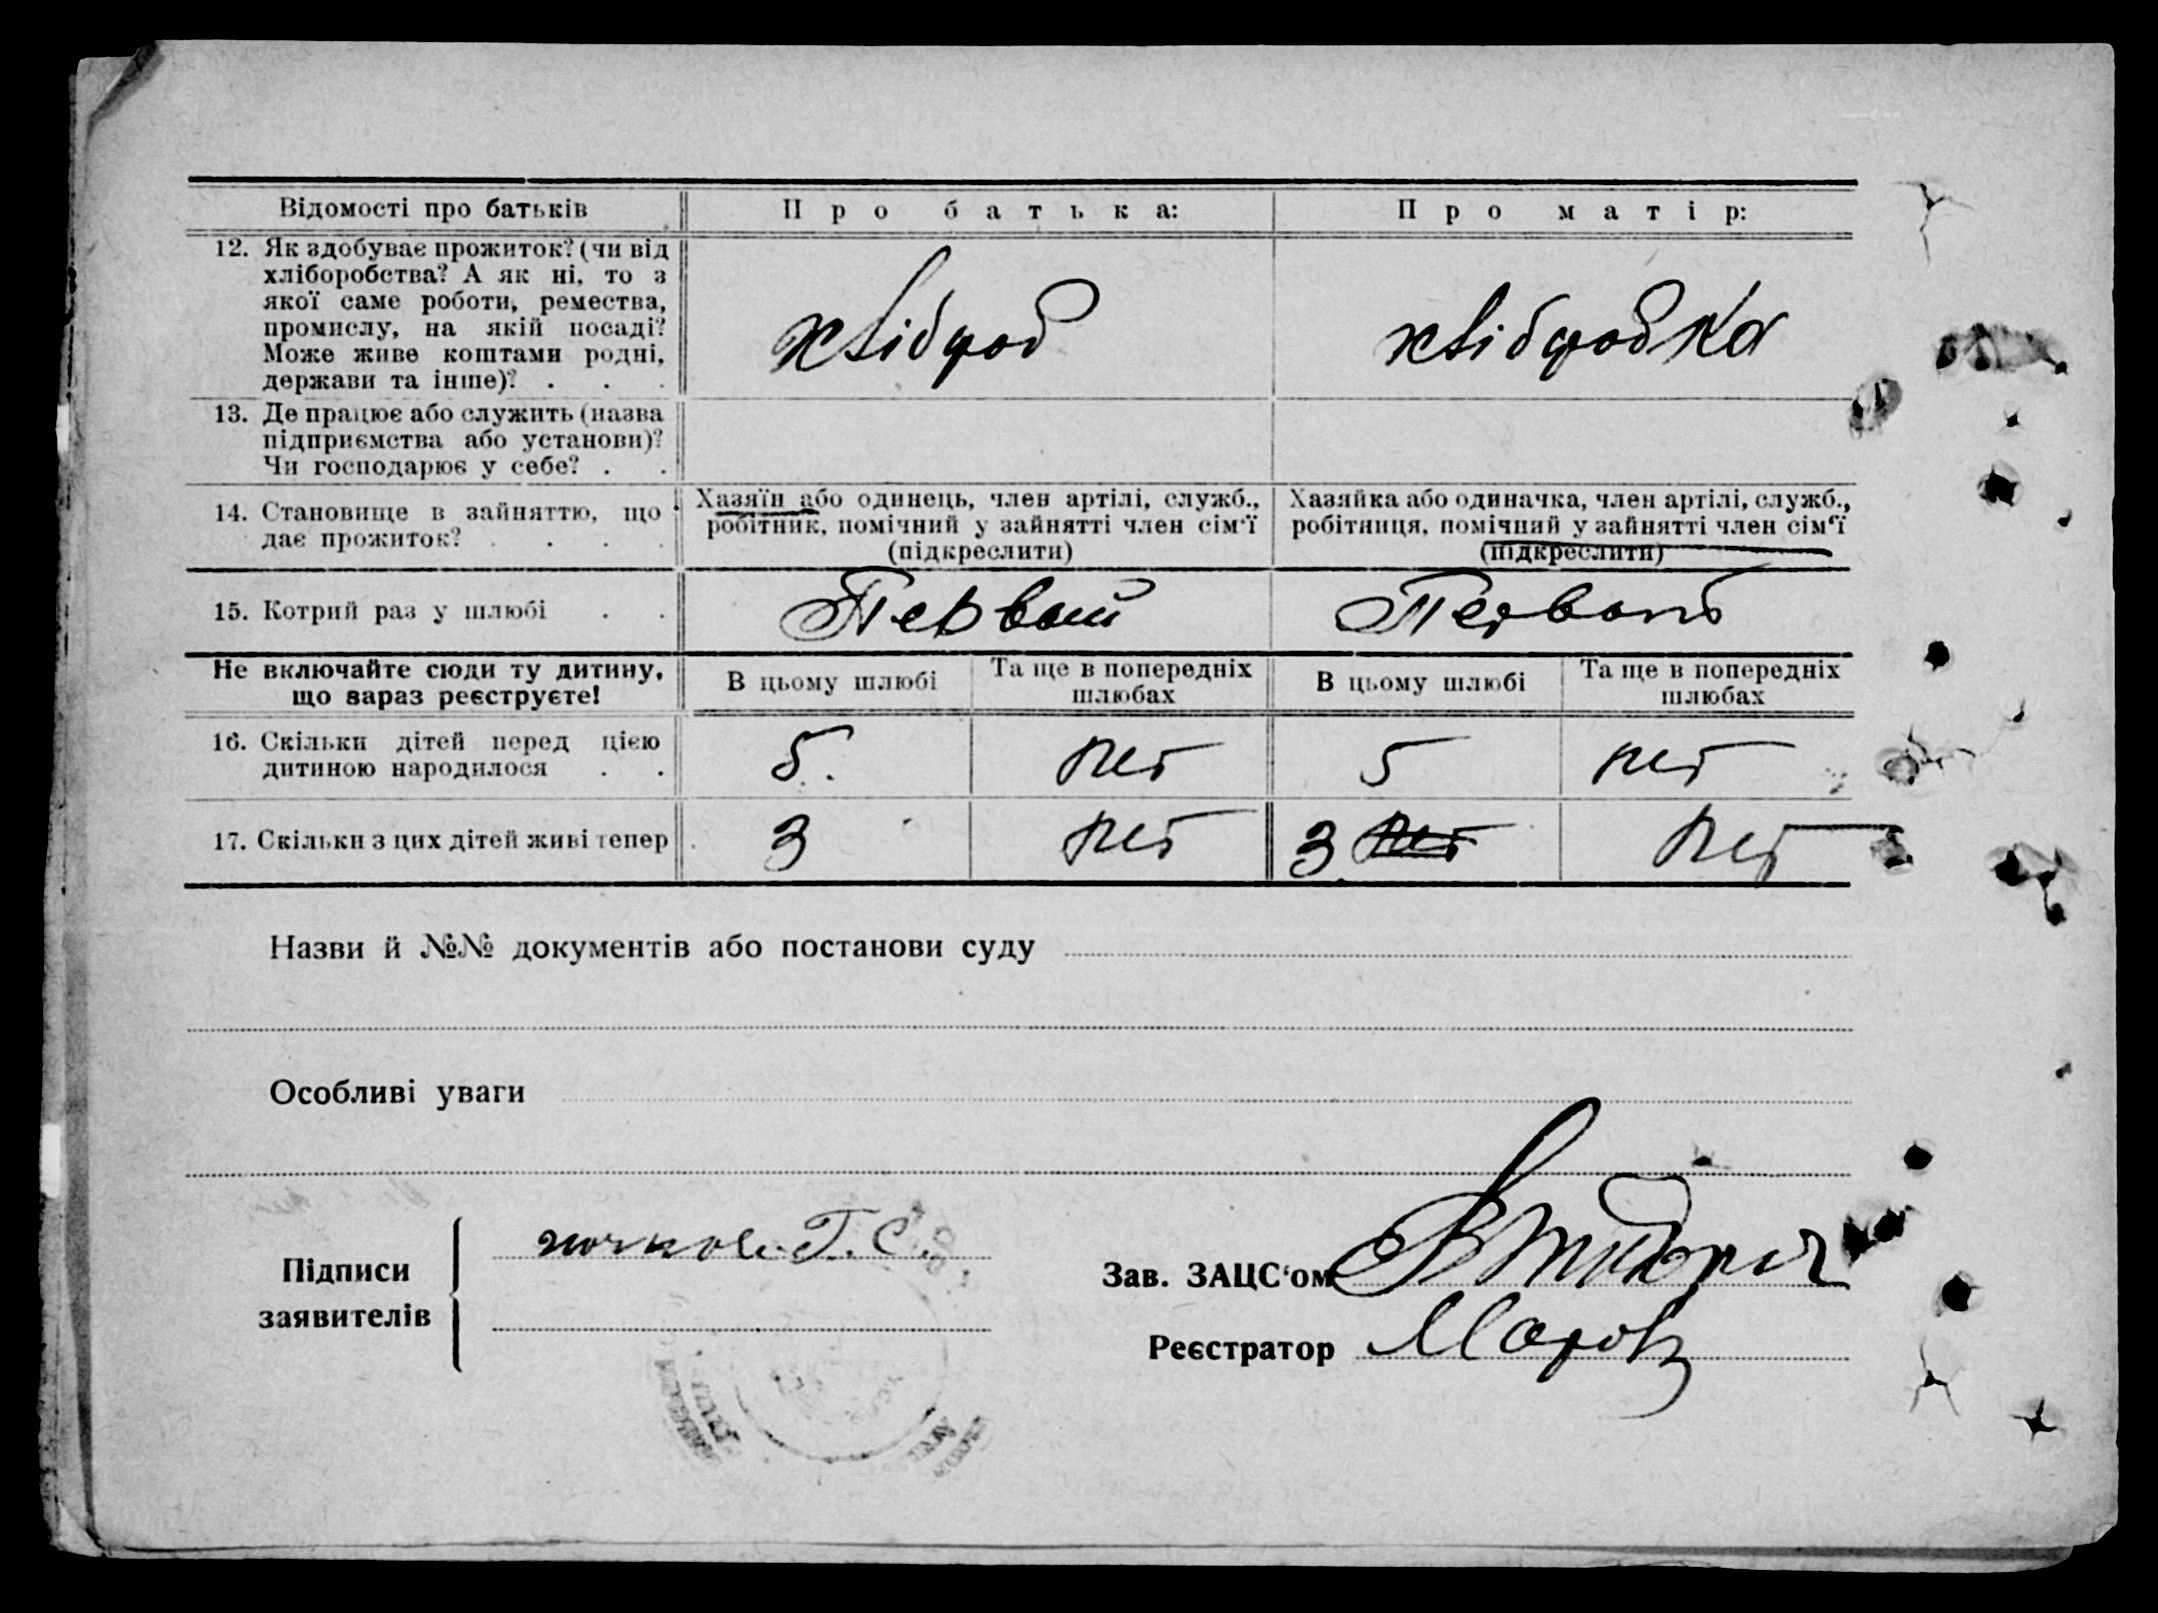 Відомості про батьків Про батька: Про матір:
12. Як здобуває прожиток? (чи від
хліборобства? А як ні, то з
якої саме роботи, ремества,
промислу, на якій посаді?
Може живе коштами родні,
держави та інше)? . . .
хлібороб хліборобка
13. Де працює або служить (назва
підприємства або установи)?
Чи господарює у себе? . .
14. Становище в зайняттю, що
дає прожиток? . . . .
Хазяїн або одинець, член артілі, служб.,
робітник, помічний у зайнятті член сім'ї
(підкреслити)
Хазяйка або одиначка, член артілі, служб.,
робітниця, помічний у зайнятті член сім'ї
(підкреслити)
15. Котрий раз у шлюбі . . Первый Первый
Не включайте сюди ту дитину,
що зараз реєструєте!
В цьому шлюбі Та ще в попередніх
шлюбах
В цьому шлюбі Та ще в попередніх
шлюбах
16. Скільки дітей перед цією
дитиною народилося . .
5. нет 5 нет
17. Скільки з цих дітей живі тепер 3 нет 3 нет нет
Назви й №№ документів або постанови суду
Особливі уваги
Підписи
заявителів
Г. С.
Зав. ЗАЦС'ом
Реєстратор